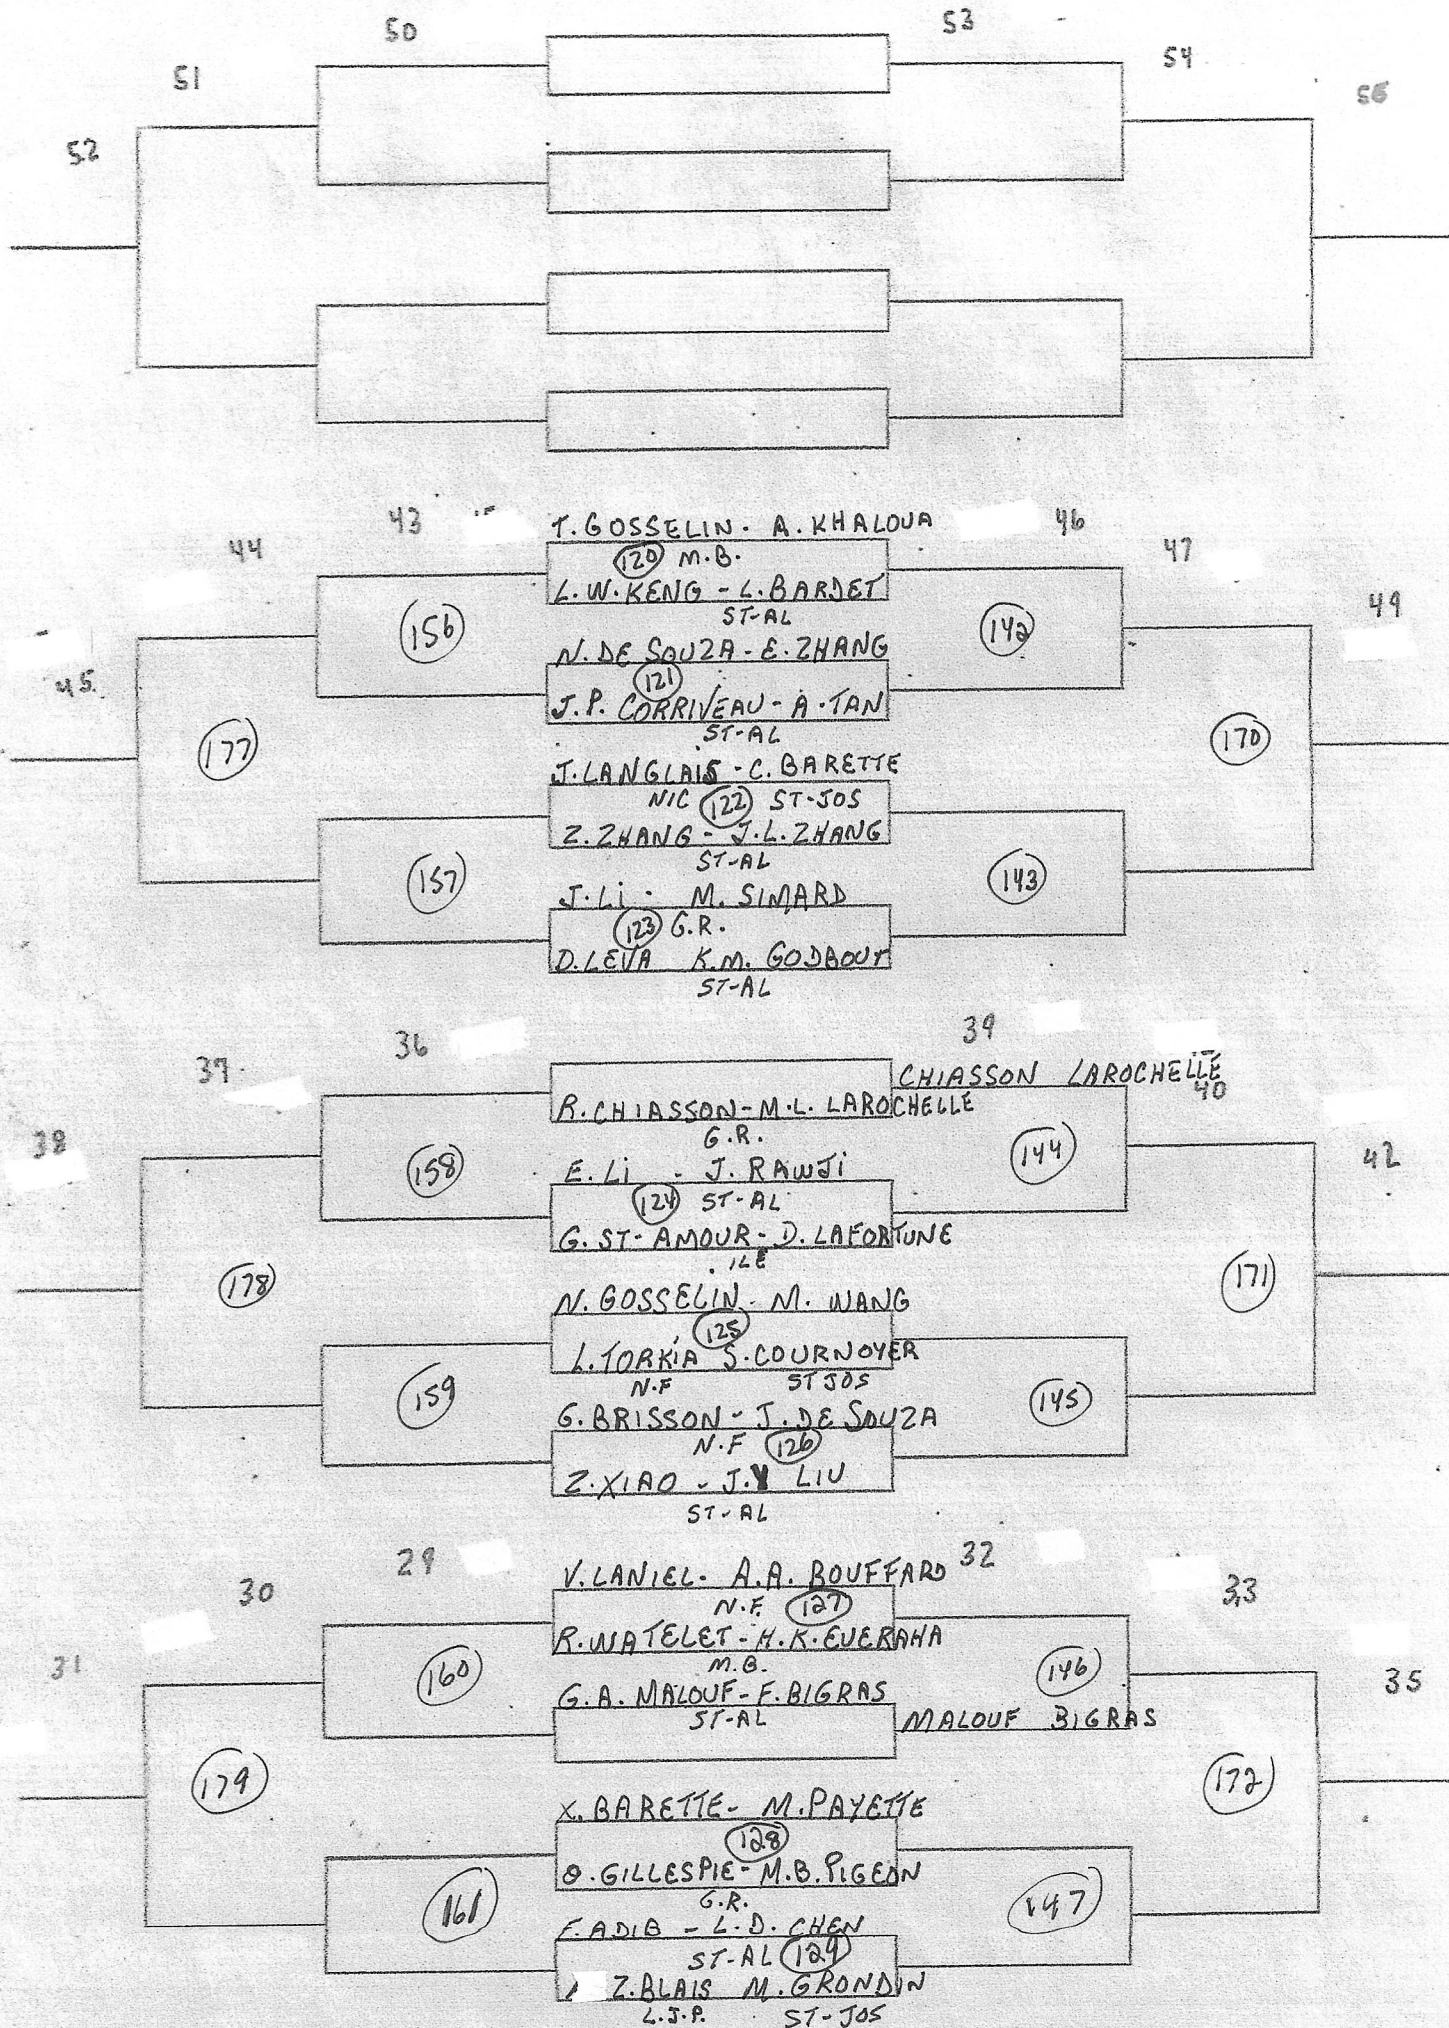 50
53
51
54
52
56
43
T. GOSSELIN - A. KHALOUA
46
44
120 M.B.
47
L.W. KENG - L. BARDET
49
ST-AL
156
142
N. DE SOUZA - E. ZHANG
45
121
J.P. CORRIVEAU - A. TAN
ST-AL
177
170
J. LANGLAIS - C. BARETTE
NIC 122 ST-JOS
Z. ZHANG - J.L. ZHANG
ST-AL
157
143
J. Li - M. SIMARD
123 G.R.
D. LEVA K.M. GODBOUT
ST-AL
36
39
37
CHIASSON LAROCHELLE
40
R. CHIASSON - M.L. LAROCHELLE
G.R.
38
42
158
144
E. Li - J. RAWJi
124 ST-AL
G. ST-AMOUR - D. LAFORTUNE
ILE
178
171
N. GOSSELIN - M. WANG
125
L. TORKIA S. COURNOYER
N.F ST JOS
159
145
G. BRISSON - J. DE SOUZA
N.F 126
Z. XIAO - J.Y LIU
ST-AL
29
V. LANIEL - A.A. BOUFFARD
32
30
33
N.F. 127
R. WATELET - H.K. EUERAHA
M.B.
31
35
160
146
G.A. MALOUF - F. BIGRAS
ST-AL
MALOUF BIGRAS
179
172
X. BARETTE - M. PAYETTE
128
O. GILLESPIE - M.B. PIGEON
G.R.
161
147
F. ADIB - L.D. CHEN
ST-AL 129
Z. BLAIS M. GRONDIN
L.J.P. ST-JOS